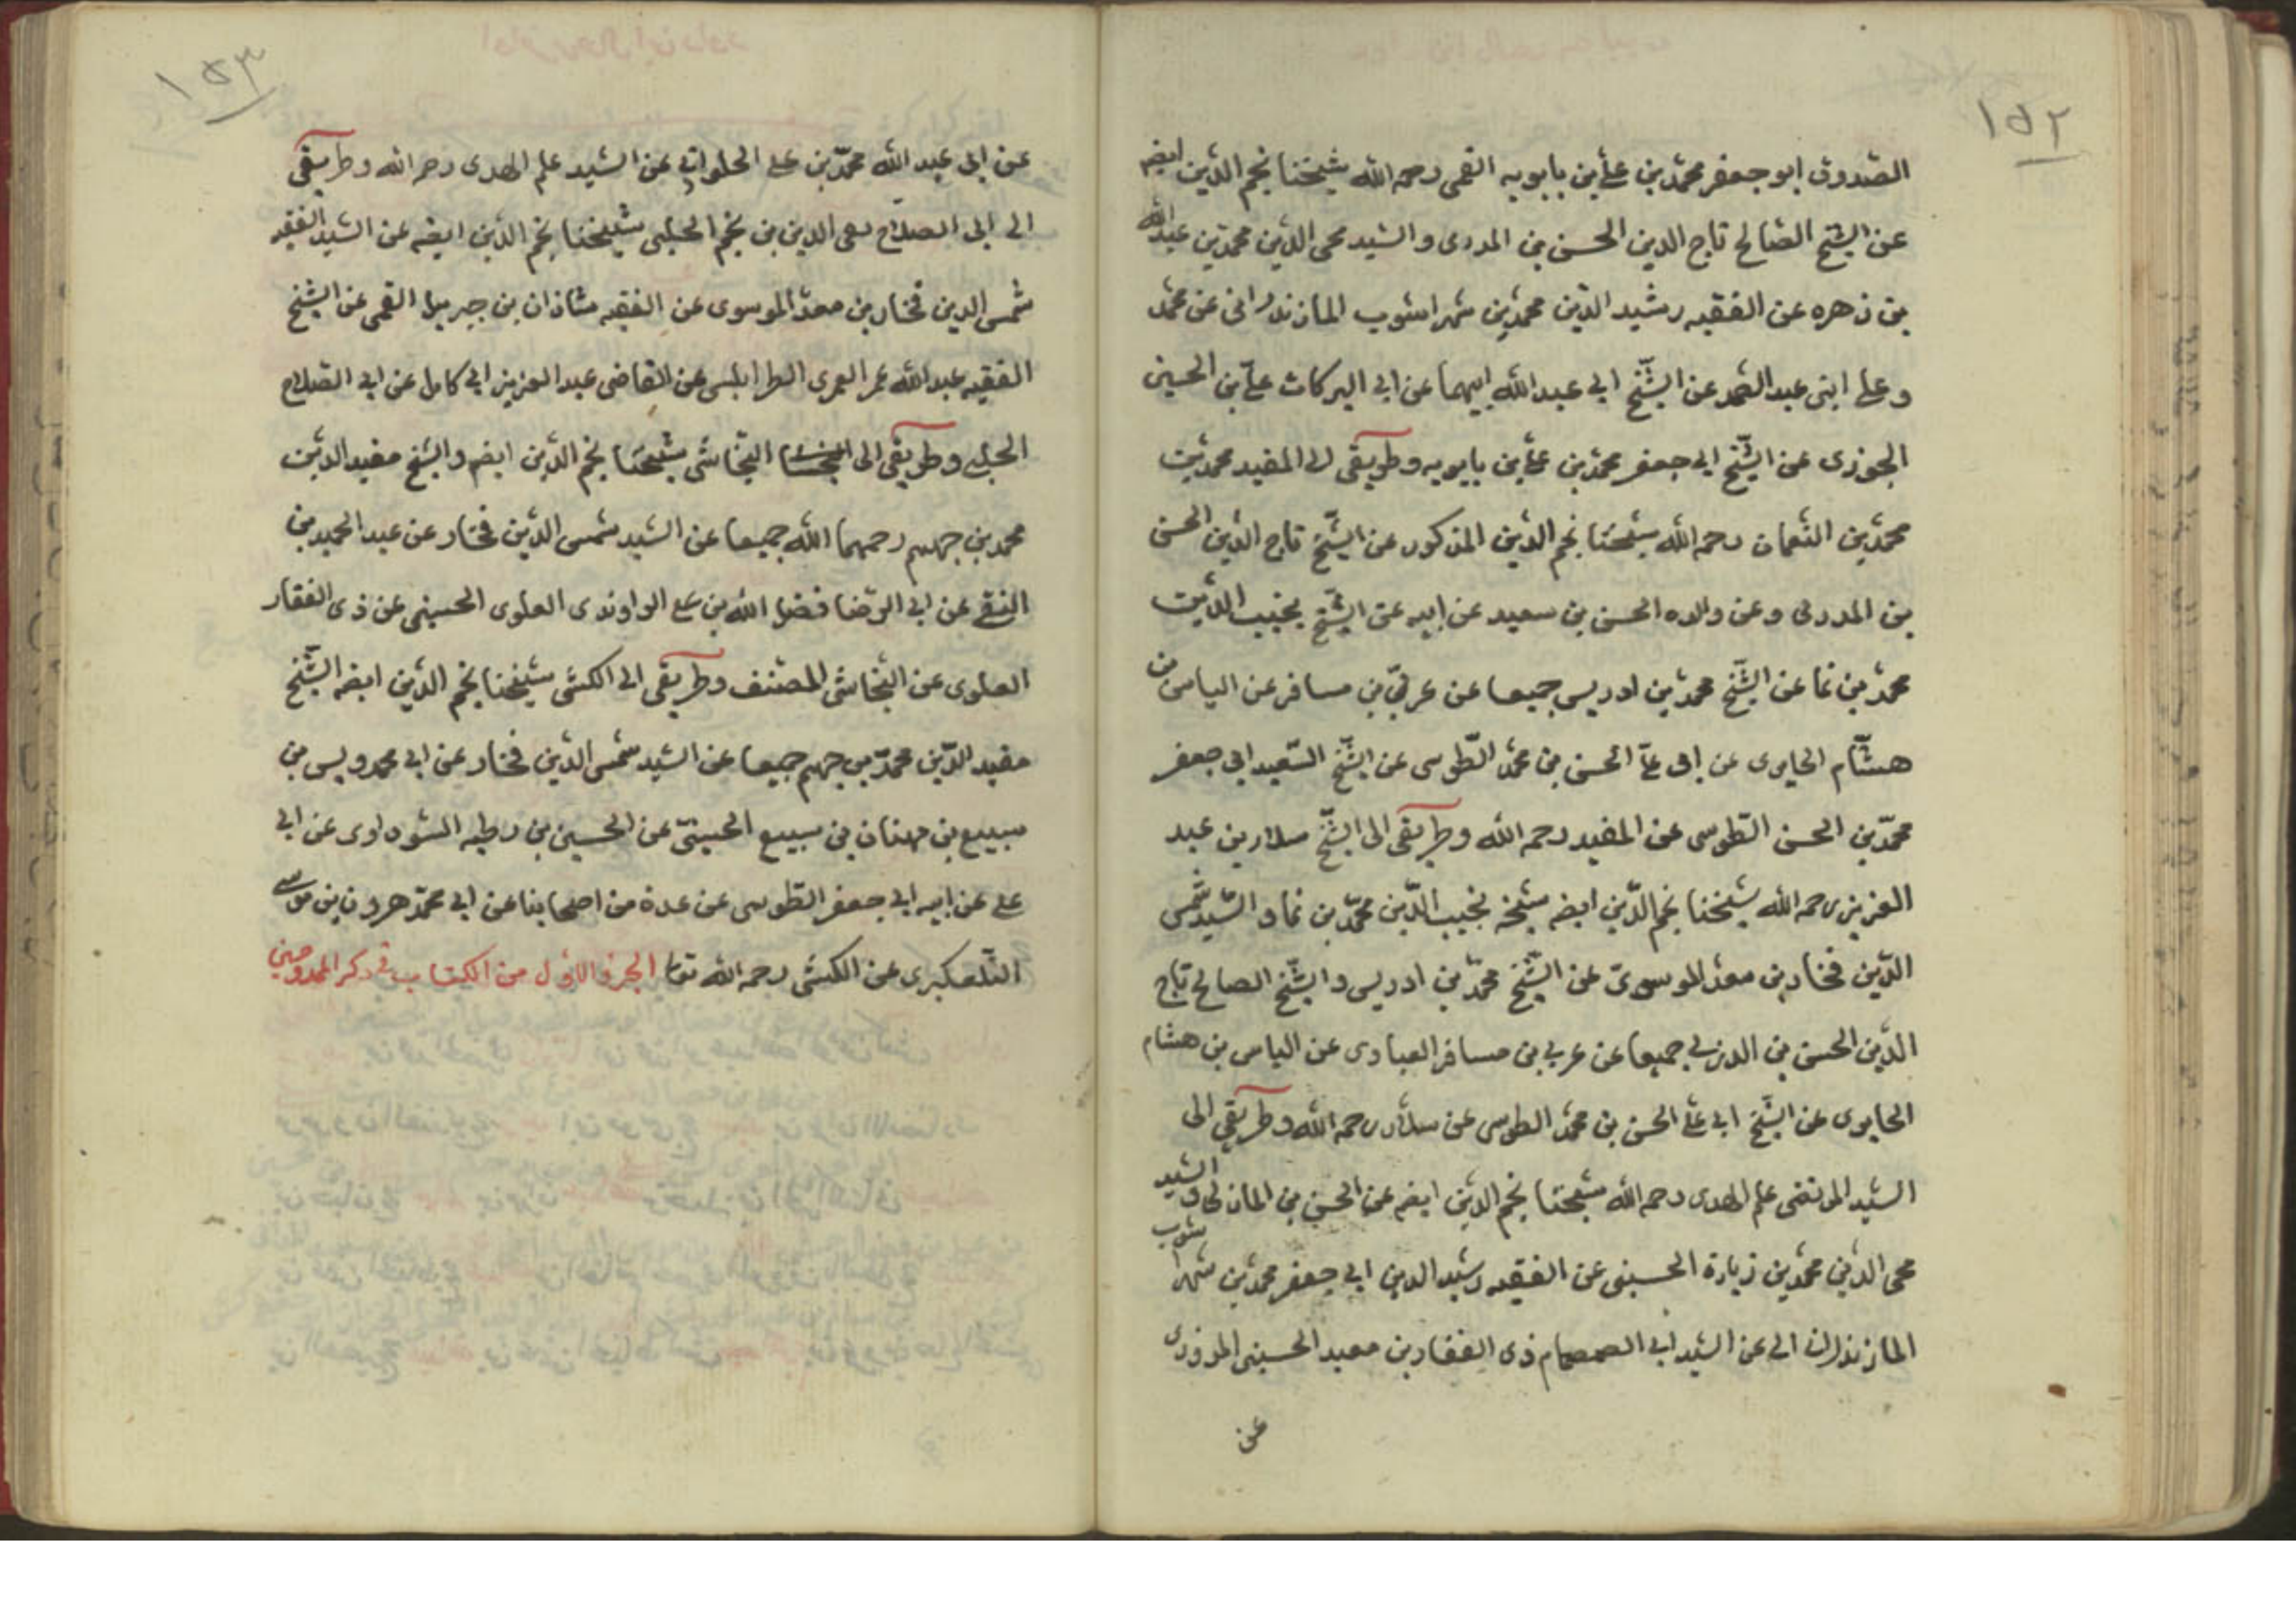 ١٥٢
الصّدوق ابو جعفر محمّد بن علىّ بن بابويه القمى رحمه الله شيخنا نجم الدّين ايضه
عن الشّيخ الصّالح تاج الدين الحسن بن المدرى والسّيد محى الدّين محمّد بن عبد الله
بن زهره عن الفقيه رشيد الدّين محمّد بن شهراشوب المازندرانى عن محمّد
وعلى ابنى عبد الصّمد عن الشّيخ ابى عبد الله ابيهما عن ابى البركات علىّ بن الحسين
الجوزى عن الشّيخ ابى جعفر محمّد بن علىّ بن بابويه وطريقى الى المفيد محمّد بن
محمّد بن النّعمان رحمه الله شيخنا نجم الدّين المذكور عن الشّيخ تاج الدّين الحسن
بن المدربى وعن والده الحسن بن سعيد عن ابيه عن الشّيخ نجيب الدّين
محمّد بن نما عن الشّيخ محمّد بن ادريس جميعا عن عربىّ بن مسافر عن الياس بن
هشّام الحايرى عن ابى علىّ الحسن بن محمّد الطّوسى عن الشّيخ السّعيد ابى جعفر
محمّد بن الحسن الطّوسى عن المفيد رحمه الله وطريقى الى الشّيخ سلار بن عبد
العزيز رحمه الله شيخنا نجم الدّين ايضه شيخه نجيب الدّين محمّد بن نما والسّيد شمس
الدّين فخار بن معدّ الموسوىّ عن الشّيخ محمّد بن ادريس والشّيخ الصالح تاج
الدّين الحسن بن الدربى جميعا عن عربى بن مسافر العبادى عن الياس بن هشام
الحايرى عن الشّيخ ابى علىّ الحسن بن محمّد الطوسى عن سلار رحمه الله وطريقى الى
السّيد المرتضى علم الهدى رحمه الله شيخنا نجم الدّين ايضه عن الحسن بن والسّيد
محى الدّين محمّد بن زيارة الحسينى عن الفقيه رشيد الدين ابى جعفر محمّد بن شهراشوب
المازندرانى عن السّيد ابى الصمصام ذى الفقار بن معبد الحسينى المروزى
عن
١٥٣
عن ابى عبد الله محمّد بن على الحلوانى عن السّيد علم الهدى رحمه الله وطريقى
الى ابى الصلاح تقى الدين بن نجم الحلبى شيخنا نجم الدّين ايضه عن السّيد الفقيه
شمس الدين فخار بن معدّ الموسوى عن الفقيه شاذان بن جبريل القمى عن الشّيخ
الفقيه عبد الله عمر العمرى الطرابلسى عن القاضى عبد العزيز ابى كامل عن ابى الصّلاح
الحلبى وطريقى الى النّجاشى شيخنا نجم الدّين ايضه والشّيخ مفيد الدّين
محمد بن جهيم رحمهما الله جميعا عن السّيد شمس الدّين فخار عن عبد الحميد بن
التقى عن ابى الرّضا فضل الله بن على الراوندى العلوى الحسينى عن ذى الفقار
العلوى عن النّجاشى المصنّف وطريقى الى الكشى شيخنا نجم الدّين ايضه الشّيخ
مفيد الدّين محمّد بن جهيم جميعا عن السّيد شمس الدّين فخار عن ابى محمد ويس بن
سبيع بن مهنان بن سبيع الحسينىّ عن الحسين بن رطبه السّوراوى عن ابى
على عن ابيه ابى جعفر الطّوسى عن عدة من اصحابنا عن ابى محمّد هرون بن موسى
التّلعكبرى عن الكشى رحمه الله تعا الجزء الاوّل من الكتاب فى ذكر الممدوحين